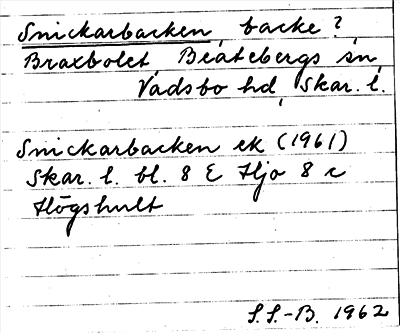 Snickarbacken, backe?,
Braxbolet, Beatebergs sn,
Vadsbo hd, Skar. l.
Snickarbacken ek (1961)
Skar. l. bl. 8 E Hjo 8 c
Högshult
S.S.-B. 1962